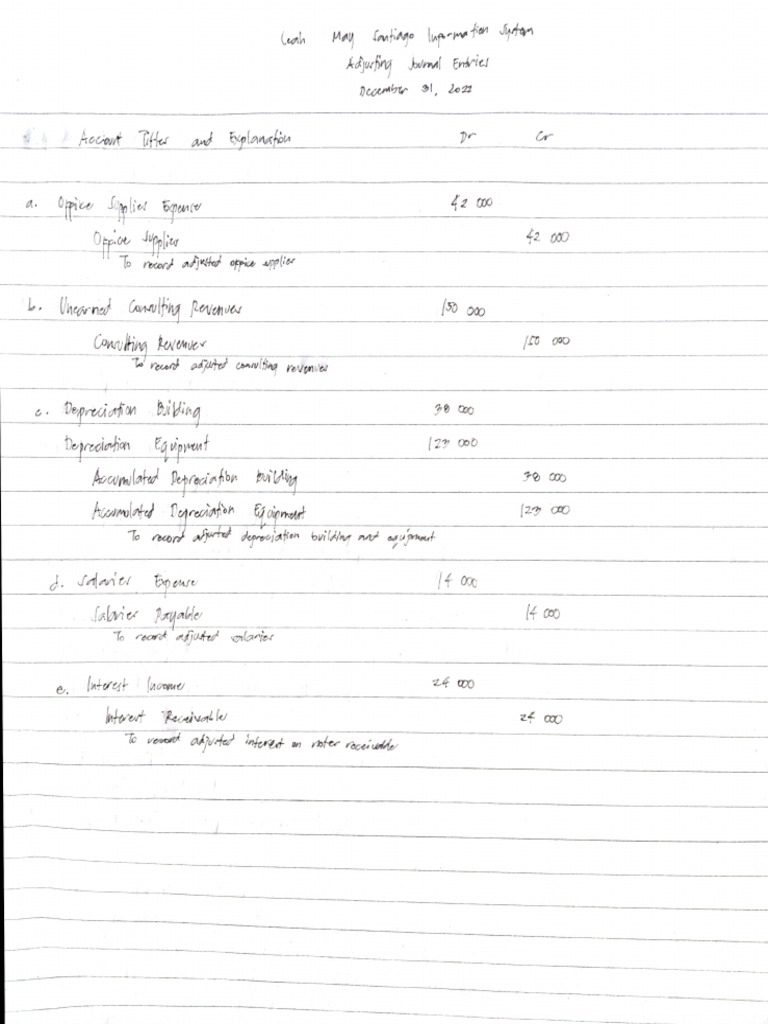 Leah May Santiago Information System
Adjusting Journal Entries
December 31, 2022
Account Titles and Explanation Dr Cr
a. Office Supplies Expense 42 000
Office Supplies 42 000
To record adjusted office supplies
b. Unearned Consulting Revenues 150 000
Consulting Revenues 150 000
To record adjusted consulting revenues
c. Depreciation Building 38 000
Depreciation Equipment 123 000
Accumulated Depreciation Building 38 000
Accumulated Depreciation Equipment 123 000
To record adjusted depreciation building and equipment
d. Salaries Expense 14 000
Salaries Payable 14 000
To record adjusted salaries
e. Interest Income 24 000
Interest Receivable 24 000
To record adjusted interest on notes receivable